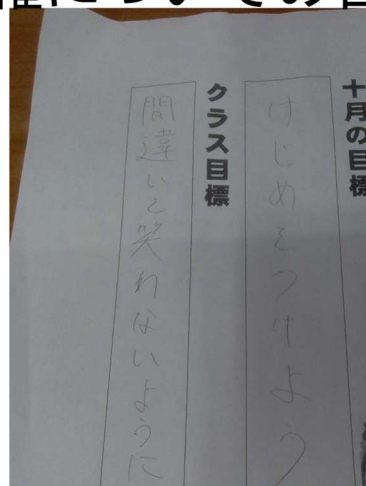 十月の目標
けじめをつけよう
クラス目標
間違いを笑わないように